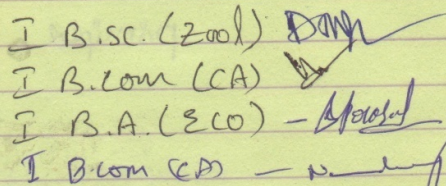 I B.SC. (Zool)
I B.com (CA)
I B.A. (ECO) -
I B.com (CA) -